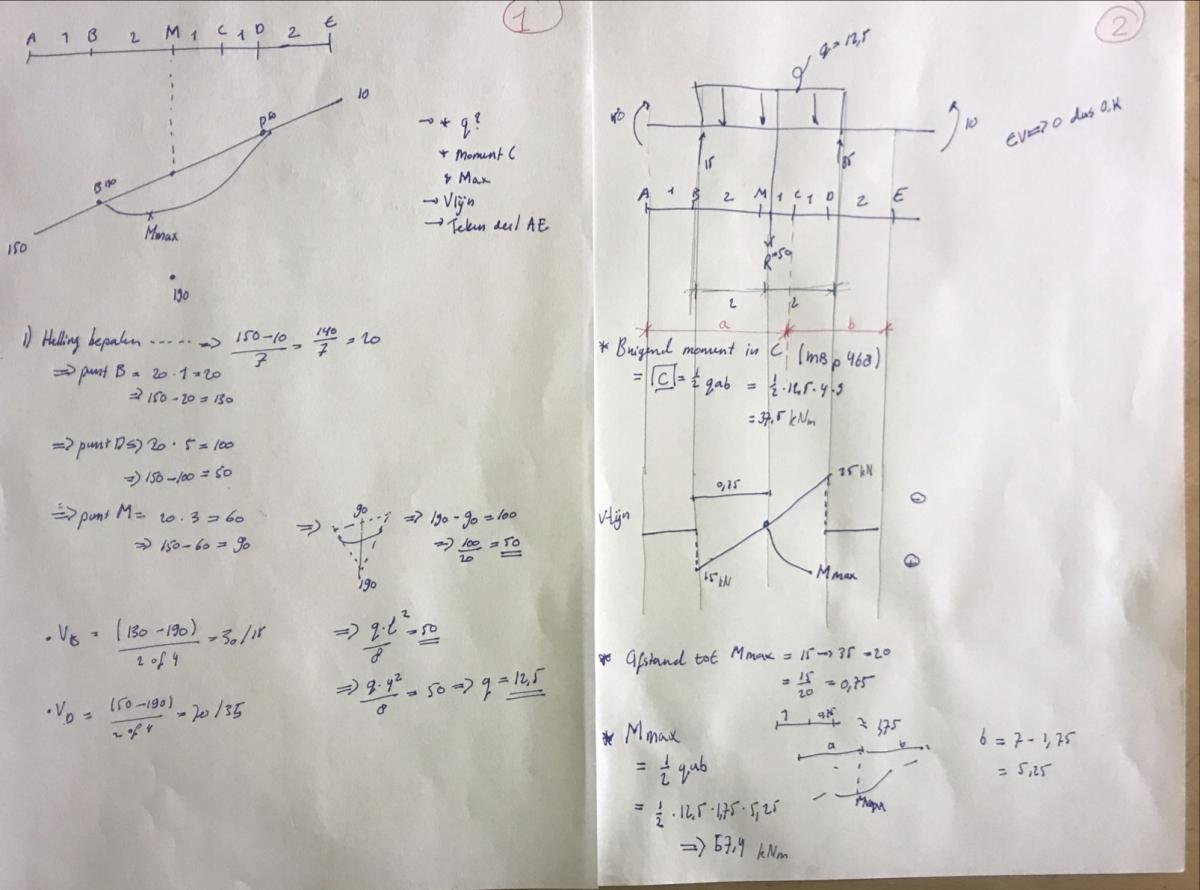 1
A 1 B 2 M 1 C 1 D 2 E
10
D50
B130
Mmax
150
190
→ * q?
* Moment C
* Max
→ Vlijn
→ Teken deel AE
1) Helling bepalen ----- => 150-10/7 = 140/7 = 20
=> punt B = 20 · 1 = 20
=> 150-20 = 130
=> punt D => 20 · 5 = 100
=> 150-100 = 50
=> punt M = 20 · 3 = 60
=> 150-60 = 90
=> 90 190
=> 190-90 = 100
=> 100/20 = 50
• VB = (130-190)/2 of 4 = 30/15
=> q·l²/8 = 50
=> q·4²/8 = 50 => q = 12,5
• VD = (50-190)/2 of 4 = 70/35
2
q = 12,5
10
15
35
EV=>0 dus O.K
A 1 B 2 M 1 C 1 D 2 E
R=50
2 2
a b
* Buigend moment in C (MB p 468)
= C = ½ qab = ½·12,5·4·3
= 37,5 kNm
0,75
35 kN
V-lijn
15 kN
Mmax
* Afstand tot Mmax = 15 → 35 = 20
= 15/20 = 0,75
1 0,75 = 1,75
* Mmax
a b
b = 7 - 1,75
= 5,25
= ½ qab
= ½ · 12,5 · 1,75 · 5,25
=> 57,4 kNm